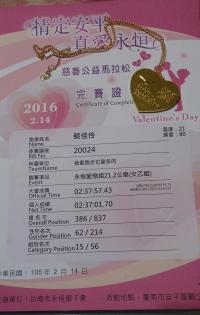 情定安平
真愛永恆
慈善公益馬拉松
完賽證
Certificate of Completi
2016
2.14
Valentine's Day
溫度: 21
濕度: 90
跑者姓名
Name
蘇佳伶
參賽號碼
Bib No.
20024
所屬單位
TeamName
我愛跑步也愛多肉
參賽項目
Event
永恆愛戀組21.2公里(女乙組)
大會成績
Official Time
02:37:57.43
個人成績
Net Time
02:37:01.70
總名次
Overall Position
386 / 837
性別名次
Gender Position
62 / 214
組別名次
Category Position
15 / 56
華民國：105 年 2 月 14 日
單位：台南市永恆獅子會
活動地點：臺南市安平區觀